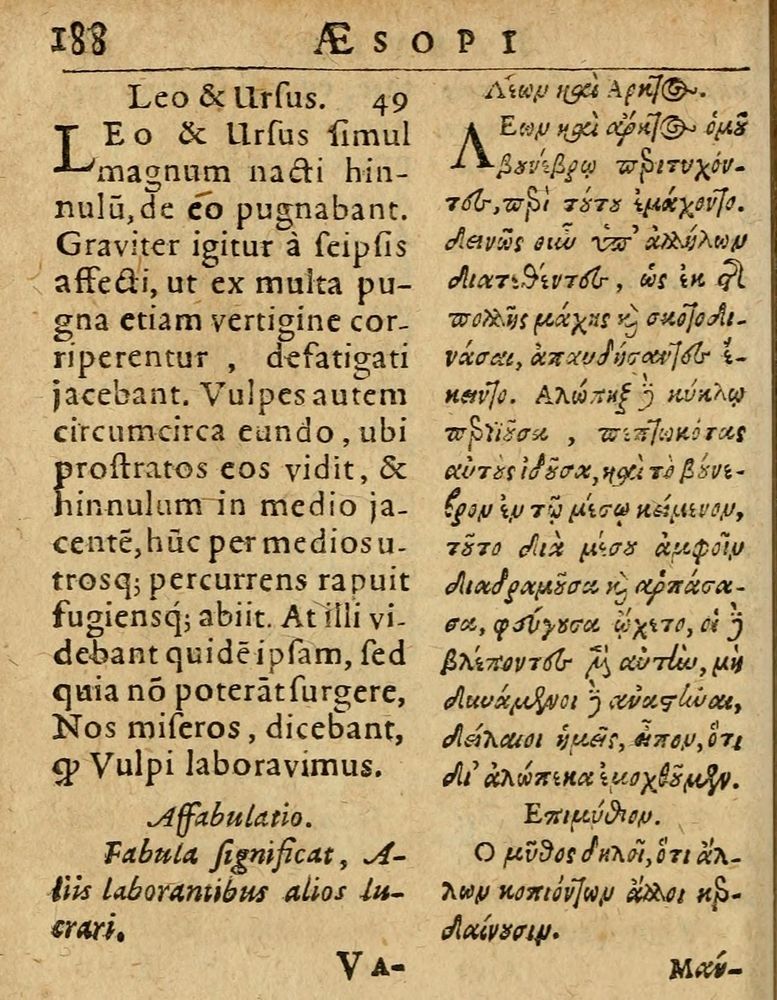 188 ÆSOPI
Leo & Urſus. 49
LEo & Urſus ſimul
magnum nacti hin-
nulũ, de eo pugnabant.
Graviter igitur à ſeipſis
affecti, ut ex multa pu-
gna etiam vertigine cor-
riperentur, defatigati
jacebant. Vulpes autem
circumcirca eundo, ubi
proſtratos eos vidit, &
hinnulum in medio ja-
centẽ, hũc per medios u-
troſq; percurrens rapuit
fugiensq́; abiit. At illi vi-
debant quidẽ ipſam, ſed
quia nõ poterãt ſurgere,
Nos miſeros, dicebant,
ꝙ Vulpi laboravimus.
Affabulatio.
Fabula ſignificat, A-
liis laborantibus alios lu-
crari.
VA-
Λέων καὶ Αρκτος.
ΛΕων καὶ ἄρκτος ὁμοῦ
βουνέβρῳ περιτυχόν-
τες, περὶ τούτου ἐμάχοντο.
δεινῶς οὖν ὑπ' ἀλλήλων
διατεθέντες, ὡς ἐκ τῆς
πολλῆς μάχης καὶ σκοτοδι-
νάσαι, ἀπαυδήσαντες ἔ-
κειντο. Αλώπηξ δὲ κύκλῳ
περιιοῦσα, πεπτωκότας
αὐτοὺς ἰδοῦσα, καὶ τὸ βούνε-
βρον ἐν τῷ μέσῳ κείμενον,
τοῦτο διὰ μέσου ἀμφοῖν
διαδραμοῦσα καὶ ἁρπάσα-
σα, φεύγουσα ᾤχετο, οἱ δὲ
βλέποντες μὲν αὐτὴν, μὴ
δυνάμενοι δὲ ἀναστῆναι,
δείλαιοι ἡμεῖς, εἶπον, ὅτι
δι' ἀλώπεκα ἐμοχθοῦμεν.
Επιμύθιον.
Ο μῦθος δηλοῖ, ὅτι ἄλ-
λων κοπιόντων ἄλλοι κερ-
δαίνουσιν.
Μαν-